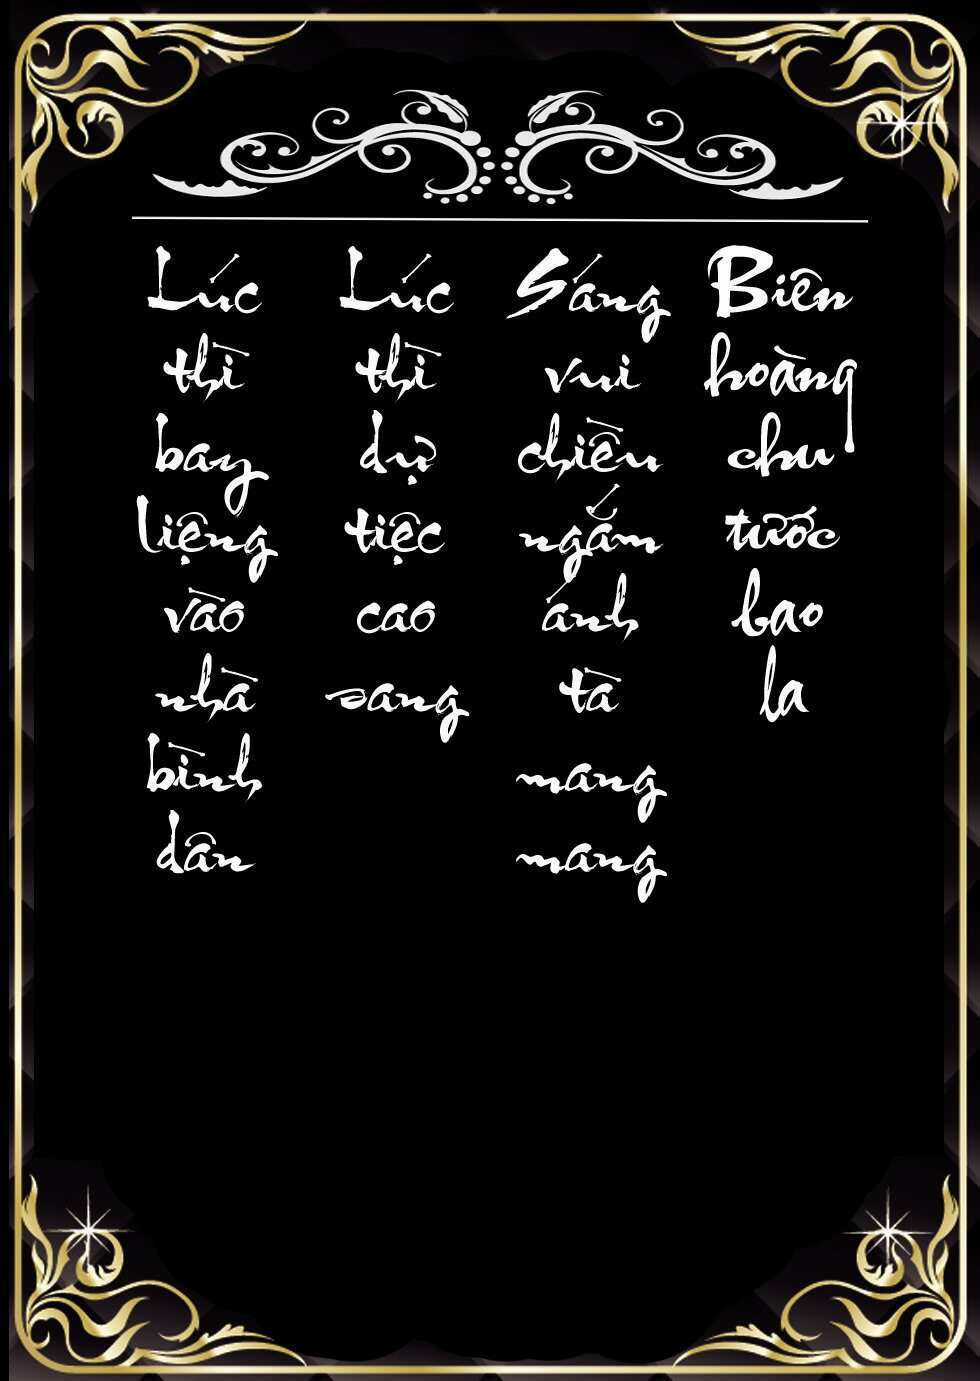 Biên hoàng chu tước bao la
Sáng vui chiều ngắm ánh tà mang mang
Lúc thì dự tiệc cao sang
Lúc thì bay liệng vào nhà bình dân